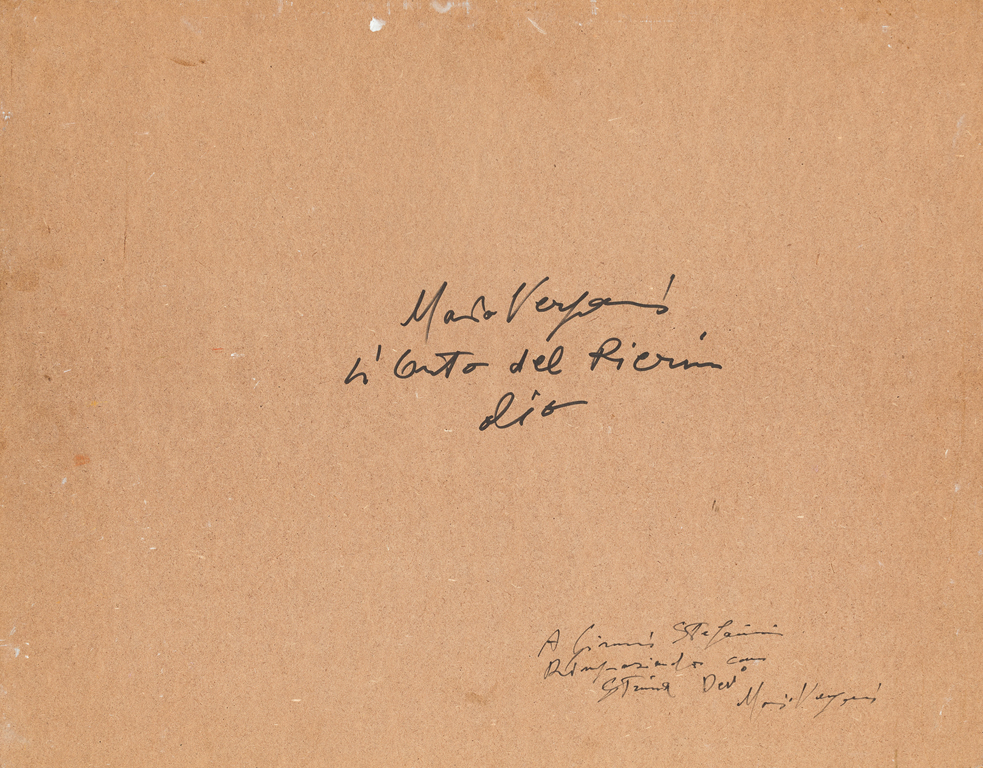 Mario Vergani
L'Orto del Pierin
olio
A Gianni Stefanini
Ringraziando con
Stima Dev.
Mario Vergani